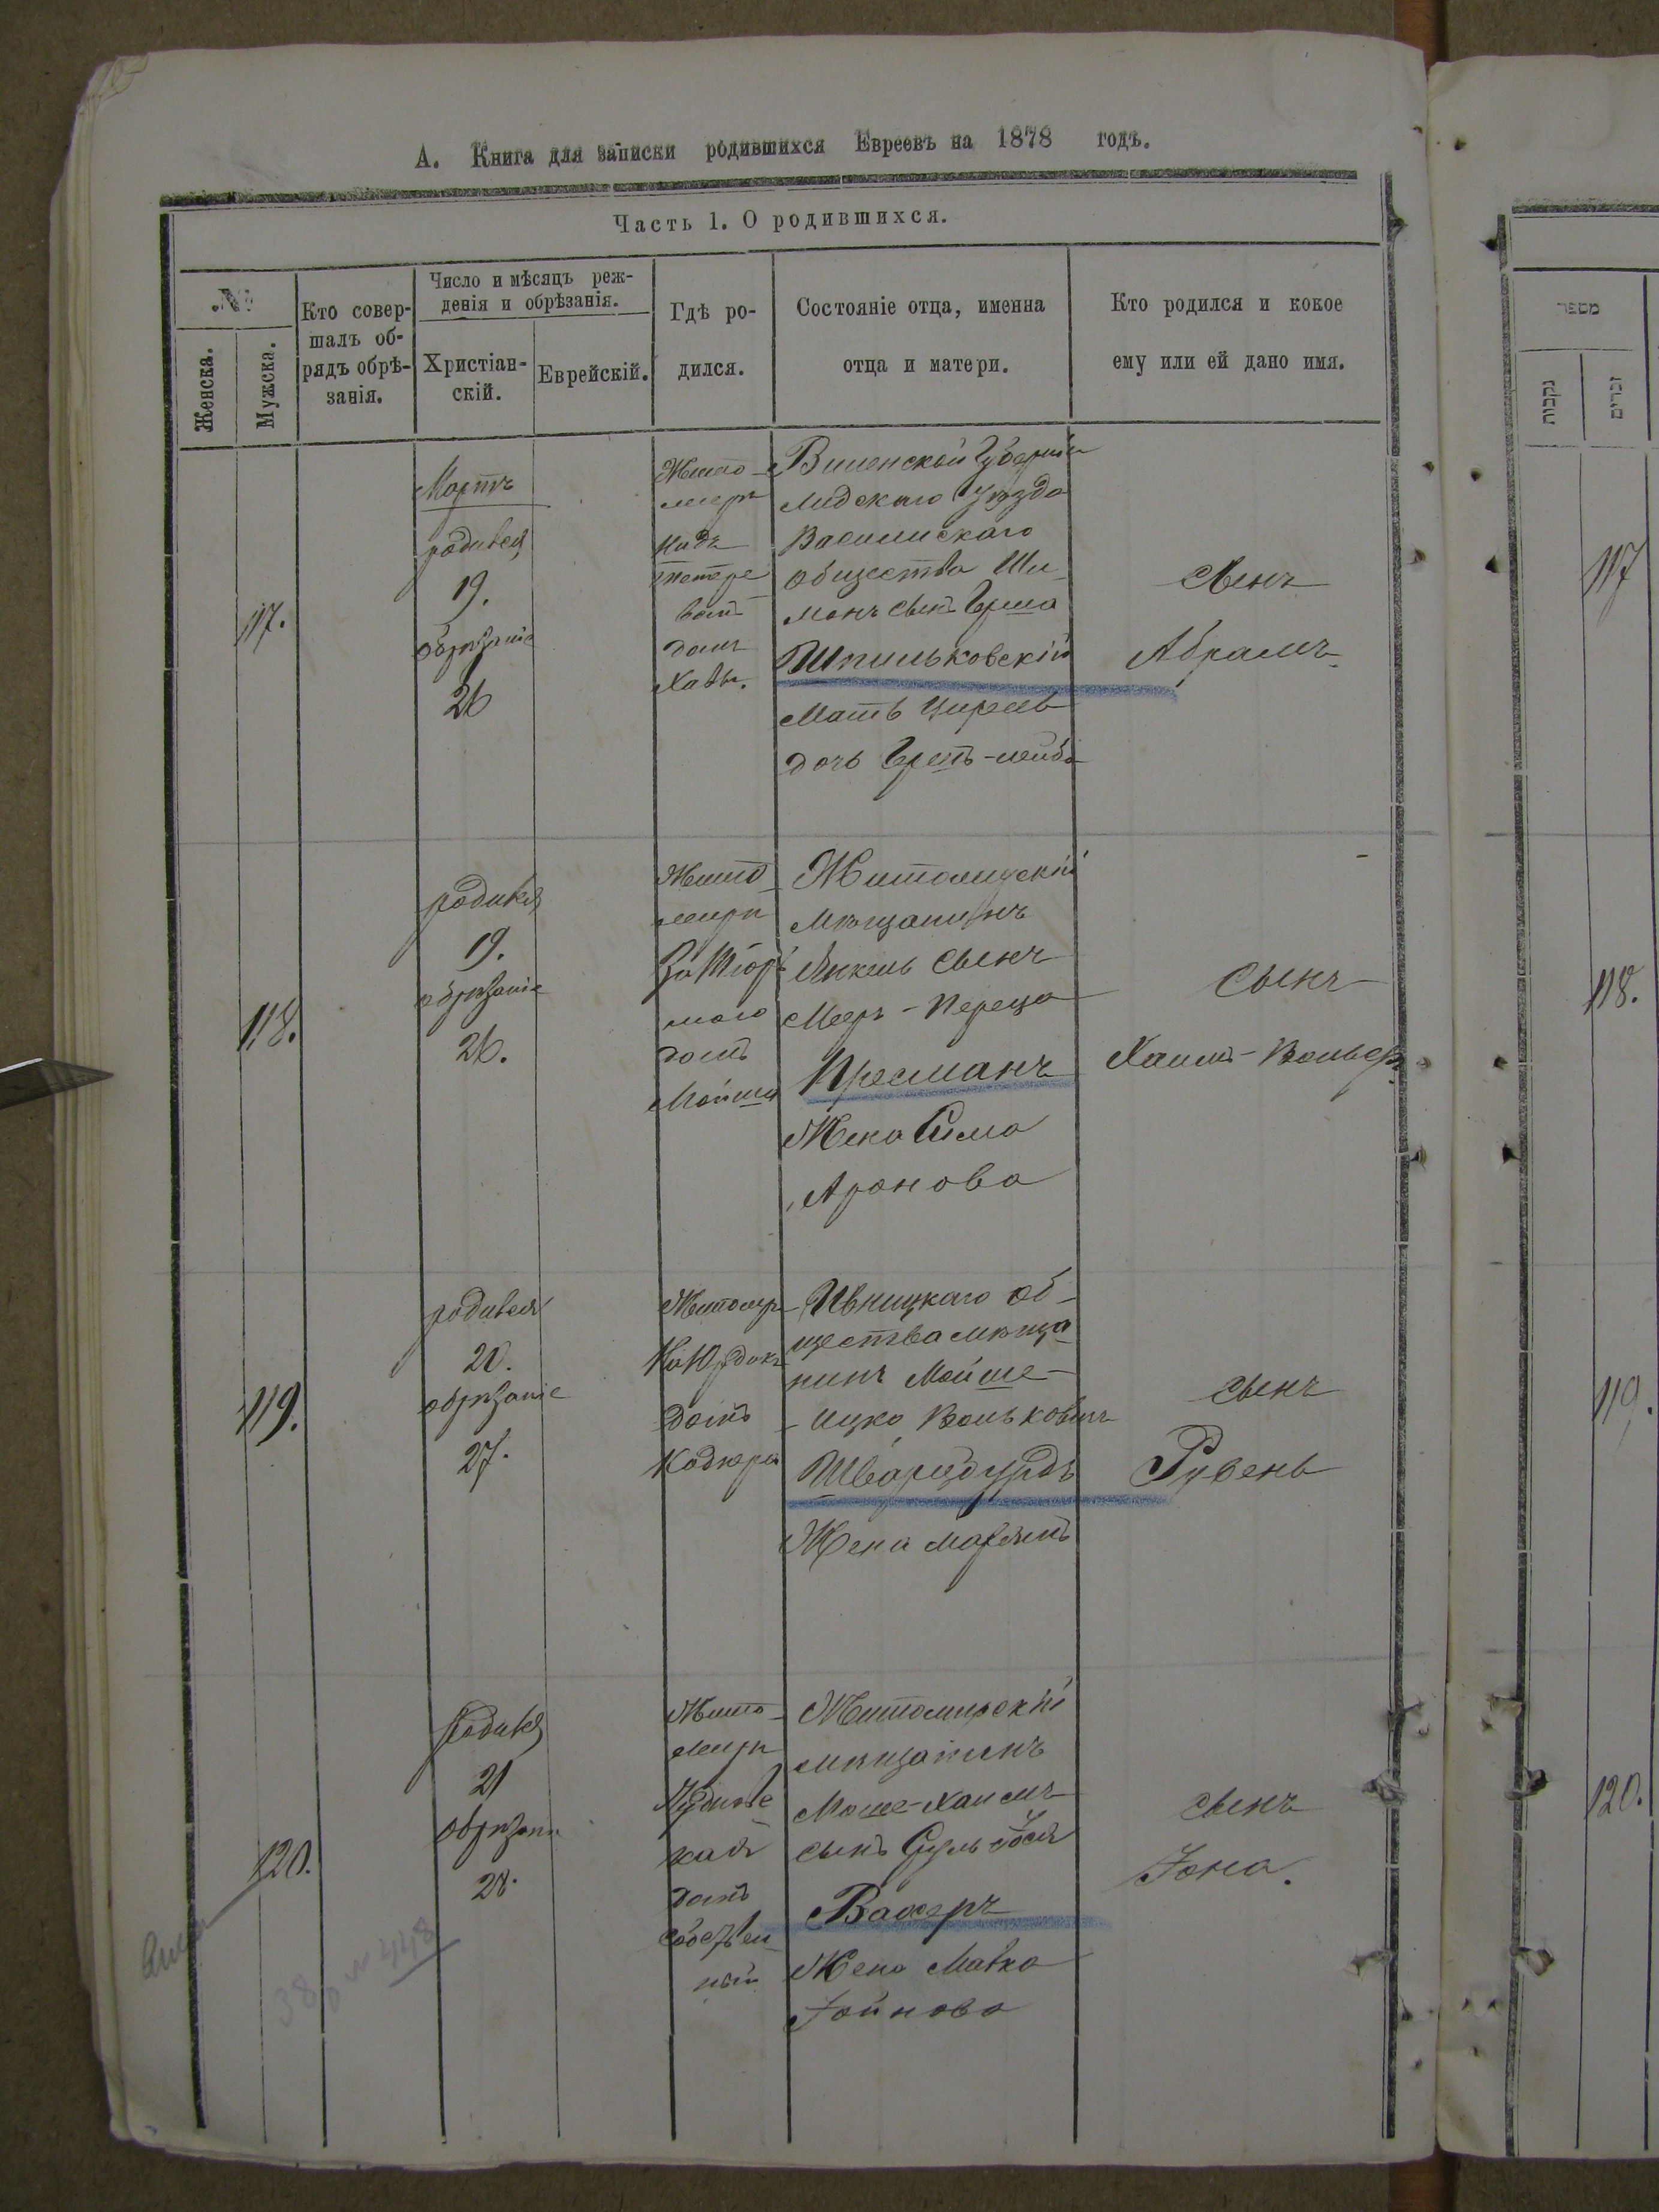 А. Книга для записки родившихся Евреевъ на 1878 годъ.
Часть 1. О родившихся.
№
Женска.
Мужска.
Кто совер-
шалъ об-
рядъ обрѣ-
занія.
Число и мѣсяцъ реж-
денія и обрѣзанія.
Христіан-
скій.
Еврейскій.
Гдѣ ро-
дился.
Состояніе отца, именна
отца и матери.
Кто родился и кокое
ему или ей дано имя.
מספר
נקבות
זכרים
117.
Мартъ
родился
19.
обрѣзаніе
26
Жито-
миръ
надъ
тетере
вомъ
домъ
Хавы.
Виленской Губерніи
Лидскаго Уѣзда
Василишскаго
общества Ши-
монъ сынъ Герша
Шпильковскій
Мать Цирель
дочь Гершъ-лейба
сынъ
Абрамъ.
117
118.
родился
19.
обрѣзаніе
26.
Жито-
миръ
домъ
Мойши
Житомирскій
мѣщанинъ
Янкель сынъ
Меер-Переца
Пресманъ
Жена Сима
Аронова
сынъ
Хаимъ-Вольф
118.
119.
родился
20.
обрѣзаніе
27.
Житомир
домъ
Ивницкаго об-
щества мѣща
нинъ Мойше-
Ицко Вольковичъ
Шварцбурдъ
Жена Марьямъ
сынъ
Рувень
119.
120.
родился
21
обрѣзани
28.
Жито-
миръ
домъ
собствен
ный
Житомирскій
мѣщанинъ
Моше-Хаимъ
сынъ
Вассеръ
Жена Матка
Іойнова
сынъ
Іона.
120.
№ 448